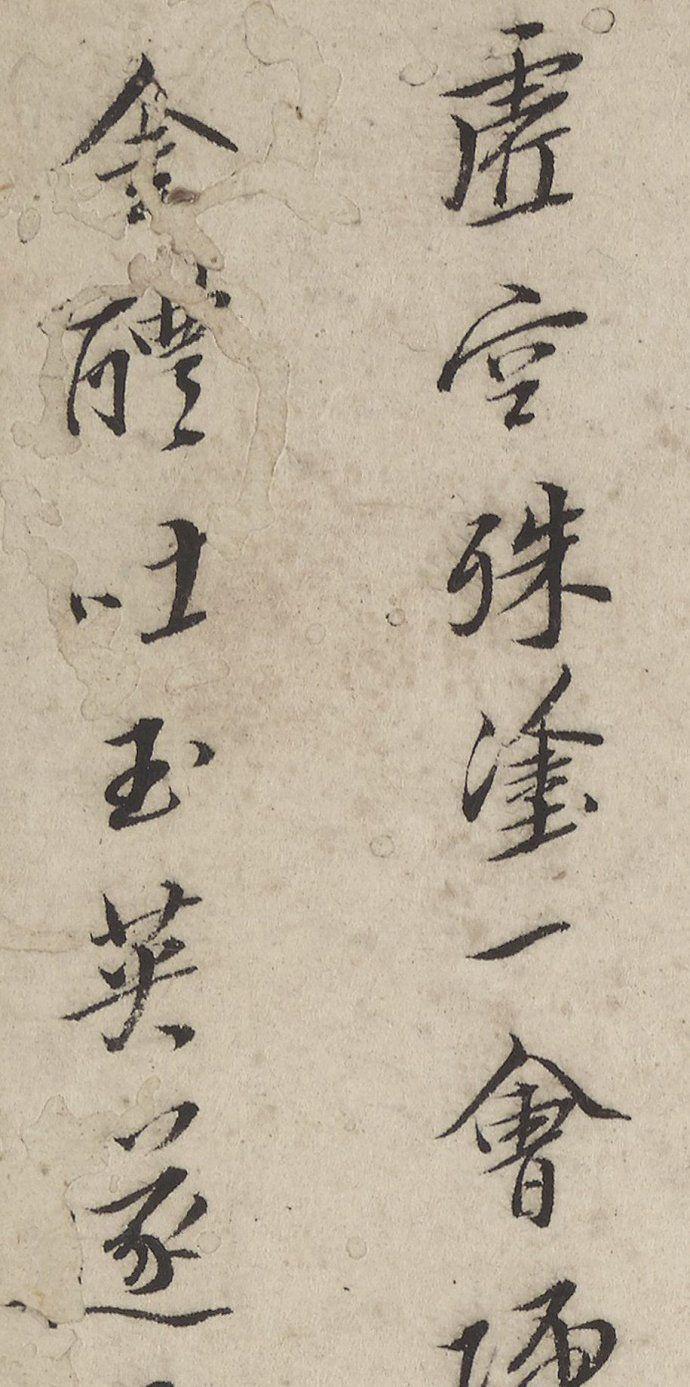 虛空殊塗一會
金醴吐玉英遂